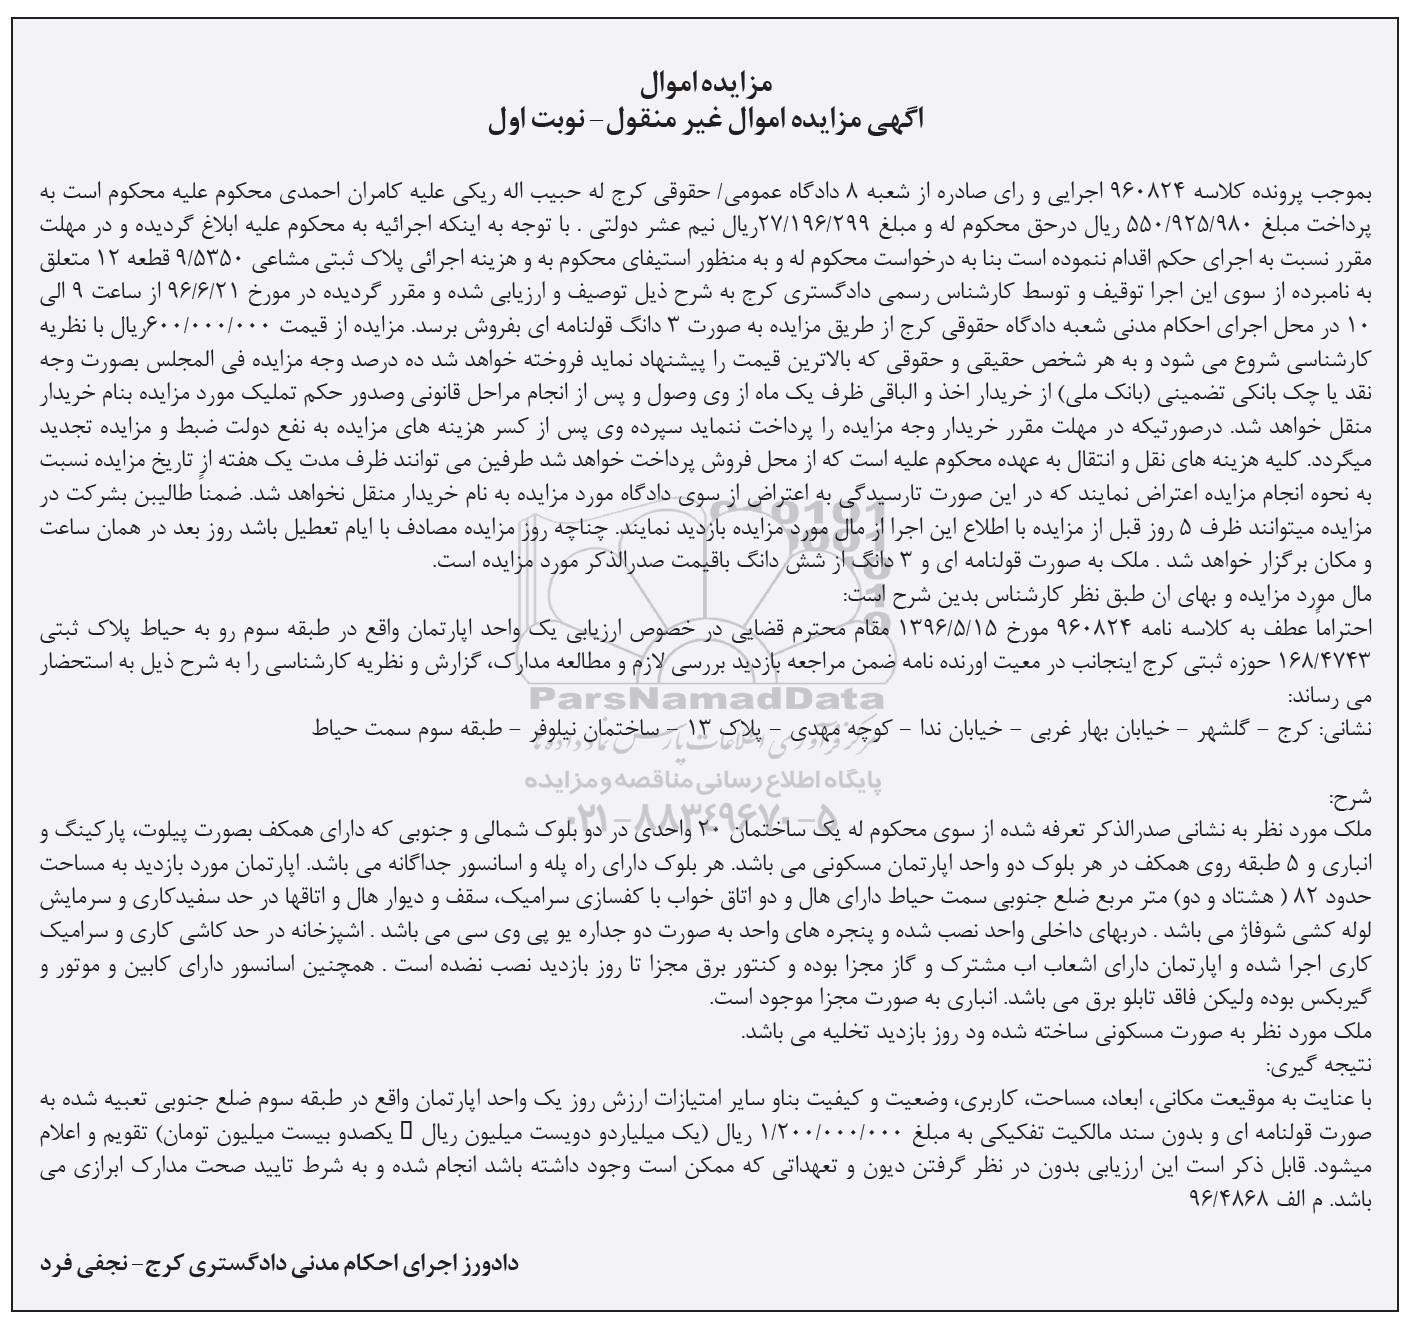 مزایده اموال
اگهی مزایده اموال غیر منقول- نوبت اول
بموجب پرونده کلاسه ۹۶۰۸۲۴ اجرایی و رای صادره از شعبه ۸ دادگاه عمومی/ حقوقی کرج له حبیب اله ریکی علیه کامران احمدی محکوم علیه محکوم است به
پرداخت مبلغ ۵۵۰/۹۲۵/۹۸۰ ریال درحق محکوم له و مبلغ ۲۷/۱۹۶/۲۹۹ریال نیم عشر دولتی . با توجه به اینکه اجرائیه به محکوم علیه ابلاغ گردیده و در مهلت
مقرر نسبت به اجرای حکم اقدام ننموده است بنا به درخواست محکوم له و به منظور استیفای محکوم به و هزینه اجرائی پلاک ثبتی مشاعی ۹/۵۳۵۰ قطعه ۱۲ متعلق
به نامبرده از سوی این اجرا توقیف و توسط کارشناس رسمی دادگستری کرج به شرح ذیل توصیف و ارزیابی شده و مقرر گردیده در مورخ ۹۶/۶/۲۱ از ساعت ۹ الی
۱۰ در محل اجرای احکام مدنی شعبه دادگاه حقوقی کرج از طریق مزایده به صورت ۳ دانگ قولنامه ای بفروش برسد. مزایده از قیمت ۶۰۰/۰۰۰/۰۰۰ریال با نظریه
کارشناسی شروع می شود و به هر شخص حقیقی و حقوقی که بالاترین قیمت را پیشنهاد نماید فروخته خواهد شد ده درصد وجه مزایده فی المجلس بصورت وجه
نقد یا چک بانکی تضمینی (بانک ملی) از خریدار اخذ و الباقی ظرف یک ماه از وی وصول و پس از انجام مراحل قانونی وصدور حکم تملیک مورد مزایده بنام خریدار
منقل خواهد شد. درصورتیکه در مهلت مقرر خریدار وجه مزایده را پرداخت ننماید سپرده وی پس از کسر هزینه های مزایده به نفع دولت ضبط و مزایده تجدید
میگردد. کلیه هزینه های نقل و انتقال به عهده محکوم علیه است که از محل فروش پرداخت خواهد شد طرفین می توانند ظرف مدت یک هفته از تاریخ مزایده نسبت
به نحوه انجام مزایده اعتراض نمایند که در این صورت تارسیدگی به اعتراض از سوی دادگاه مورد مزایده به نام خریدار منقل نخواهد شد. ضمناً طالیبن بشرکت در
مزایده میتوانند ظرف ۵ روز قبل از مزایده با اطلاع این اجرا از مال مورد مزایده بازدید نمایند. چناچه روز مزایده مصادف با ایام تعطیل باشد روز بعد در همان ساعت
و مکان برگزار خواهد شد . ملک به صورت قولنامه ای و ۳ دانگ از شش دانگ باقیمت صدرالذکر مورد مزایده است.
مال مورد مزایده و بهای ان طبق نظر کارشناس بدین شرح است:
احتراماً عطف به کلاسه نامه ۹۶۰۸۲۴ مورخ ۱۳۹۶/۵/۱۵ مقام محترم قضایی در خصوص ارزیابی یک واحد اپارتمان واقع در طبقه سوم رو به حیاط پلاک ثبتی
۱۶۸/۴۷۴۳ حوزه ثبتی کرج اینجانب در معیت اورنده نامه ضمن مراجعه بازدید بررسی لازم و مطالعه مدارک، گزارش و نظریه کارشناسی را به شرح ذیل به استحضار
می رساند:
ParsNamadData
نشانی: کرج - گلشهر - خیابان بهار غربی - خیابان ندا - کوچه مهدی - پلاک ۱۳ - ساختمان نیلوفر - طبقه سوم سمت حیاط
مرکز فرآوری اطلاعات پارس نماد داده ها
پایگاه اطلاع رسانی مناقصه و مزایده
شرح:
۰۲۱-۸۸۳۴۹۶۷۰-۵
ملک مورد نظر به نشانی صدرالذکر تعرفه شده از سوی محکوم له یک ساختمان ۲۰ واحدی در دو بلوک شمالی و جنوبی که دارای همکف بصورت پیلوت، پارکینگ و
انباری و ۵ طبقه روی همکف در هر بلوک دو واحد اپارتمان مسکونی می باشد. هر بلوک دارای راه پله و اسانسور جداگانه می باشد. اپارتمان مورد بازدید به مساحت
حدود ۸۲ ( هشتاد و دو) متر مربع ضلع جنوبی سمت حیاط دارای هال و دو اتاق خواب با کفسازی سرامیک، سقف و دیوار هال و اتاقها در حد سفیدکاری و سرمایش
لوله کشی شوفاژ می باشد . دربهای داخلی واحد نصب شده و پنجره های واحد به صورت دو جداره یو پی وی سی می باشد . اشپزخانه در حد کاشی کاری و سرامیک
کاری اجرا شده و اپارتمان دارای اشعاب اب مشترک و گاز مجزا بوده و کنتور برق مجزا تا روز بازدید نصب نضده است . همچنین اسانسور دارای کابین و موتور و
گیربکس بوده ولیکن فاقد تابلو برق می باشد. انباری به صورت مجزا موجود است.
ملک مورد نظر به صورت مسکونی ساخته شده ود روز بازدید تخلیه می باشد.
نتیجه گیری:
با عنایت به موقیعت مکانی، ابعاد، مساحت، کاربری، وضعیت و کیفیت بناو سایر امتیازات ارزش روز یک واحد اپارتمان واقع در طبقه سوم ضلع جنوبی تعبیه شده به
صورت قولنامه ای و بدون سند مالکیت تفکیکی به مبلغ ۱/۲۰۰/۰۰۰/۰۰۰ ریال (یک میلیاردو دویست میلیون ریال ▯ یکصدو بیست میلیون تومان) تقویم و اعلام
میشود. قابل ذکر است این ارزیابی بدون در نظر گرفتن دیون و تعهداتی که ممکن است وجود داشته باشد انجام شده و به شرط تایید صحت مدارک ابرازی می
باشد. م الف ۹۶/۴۸۶۸
دادورز اجرای احکام مدنی دادگستری کرج- نجفی فرد